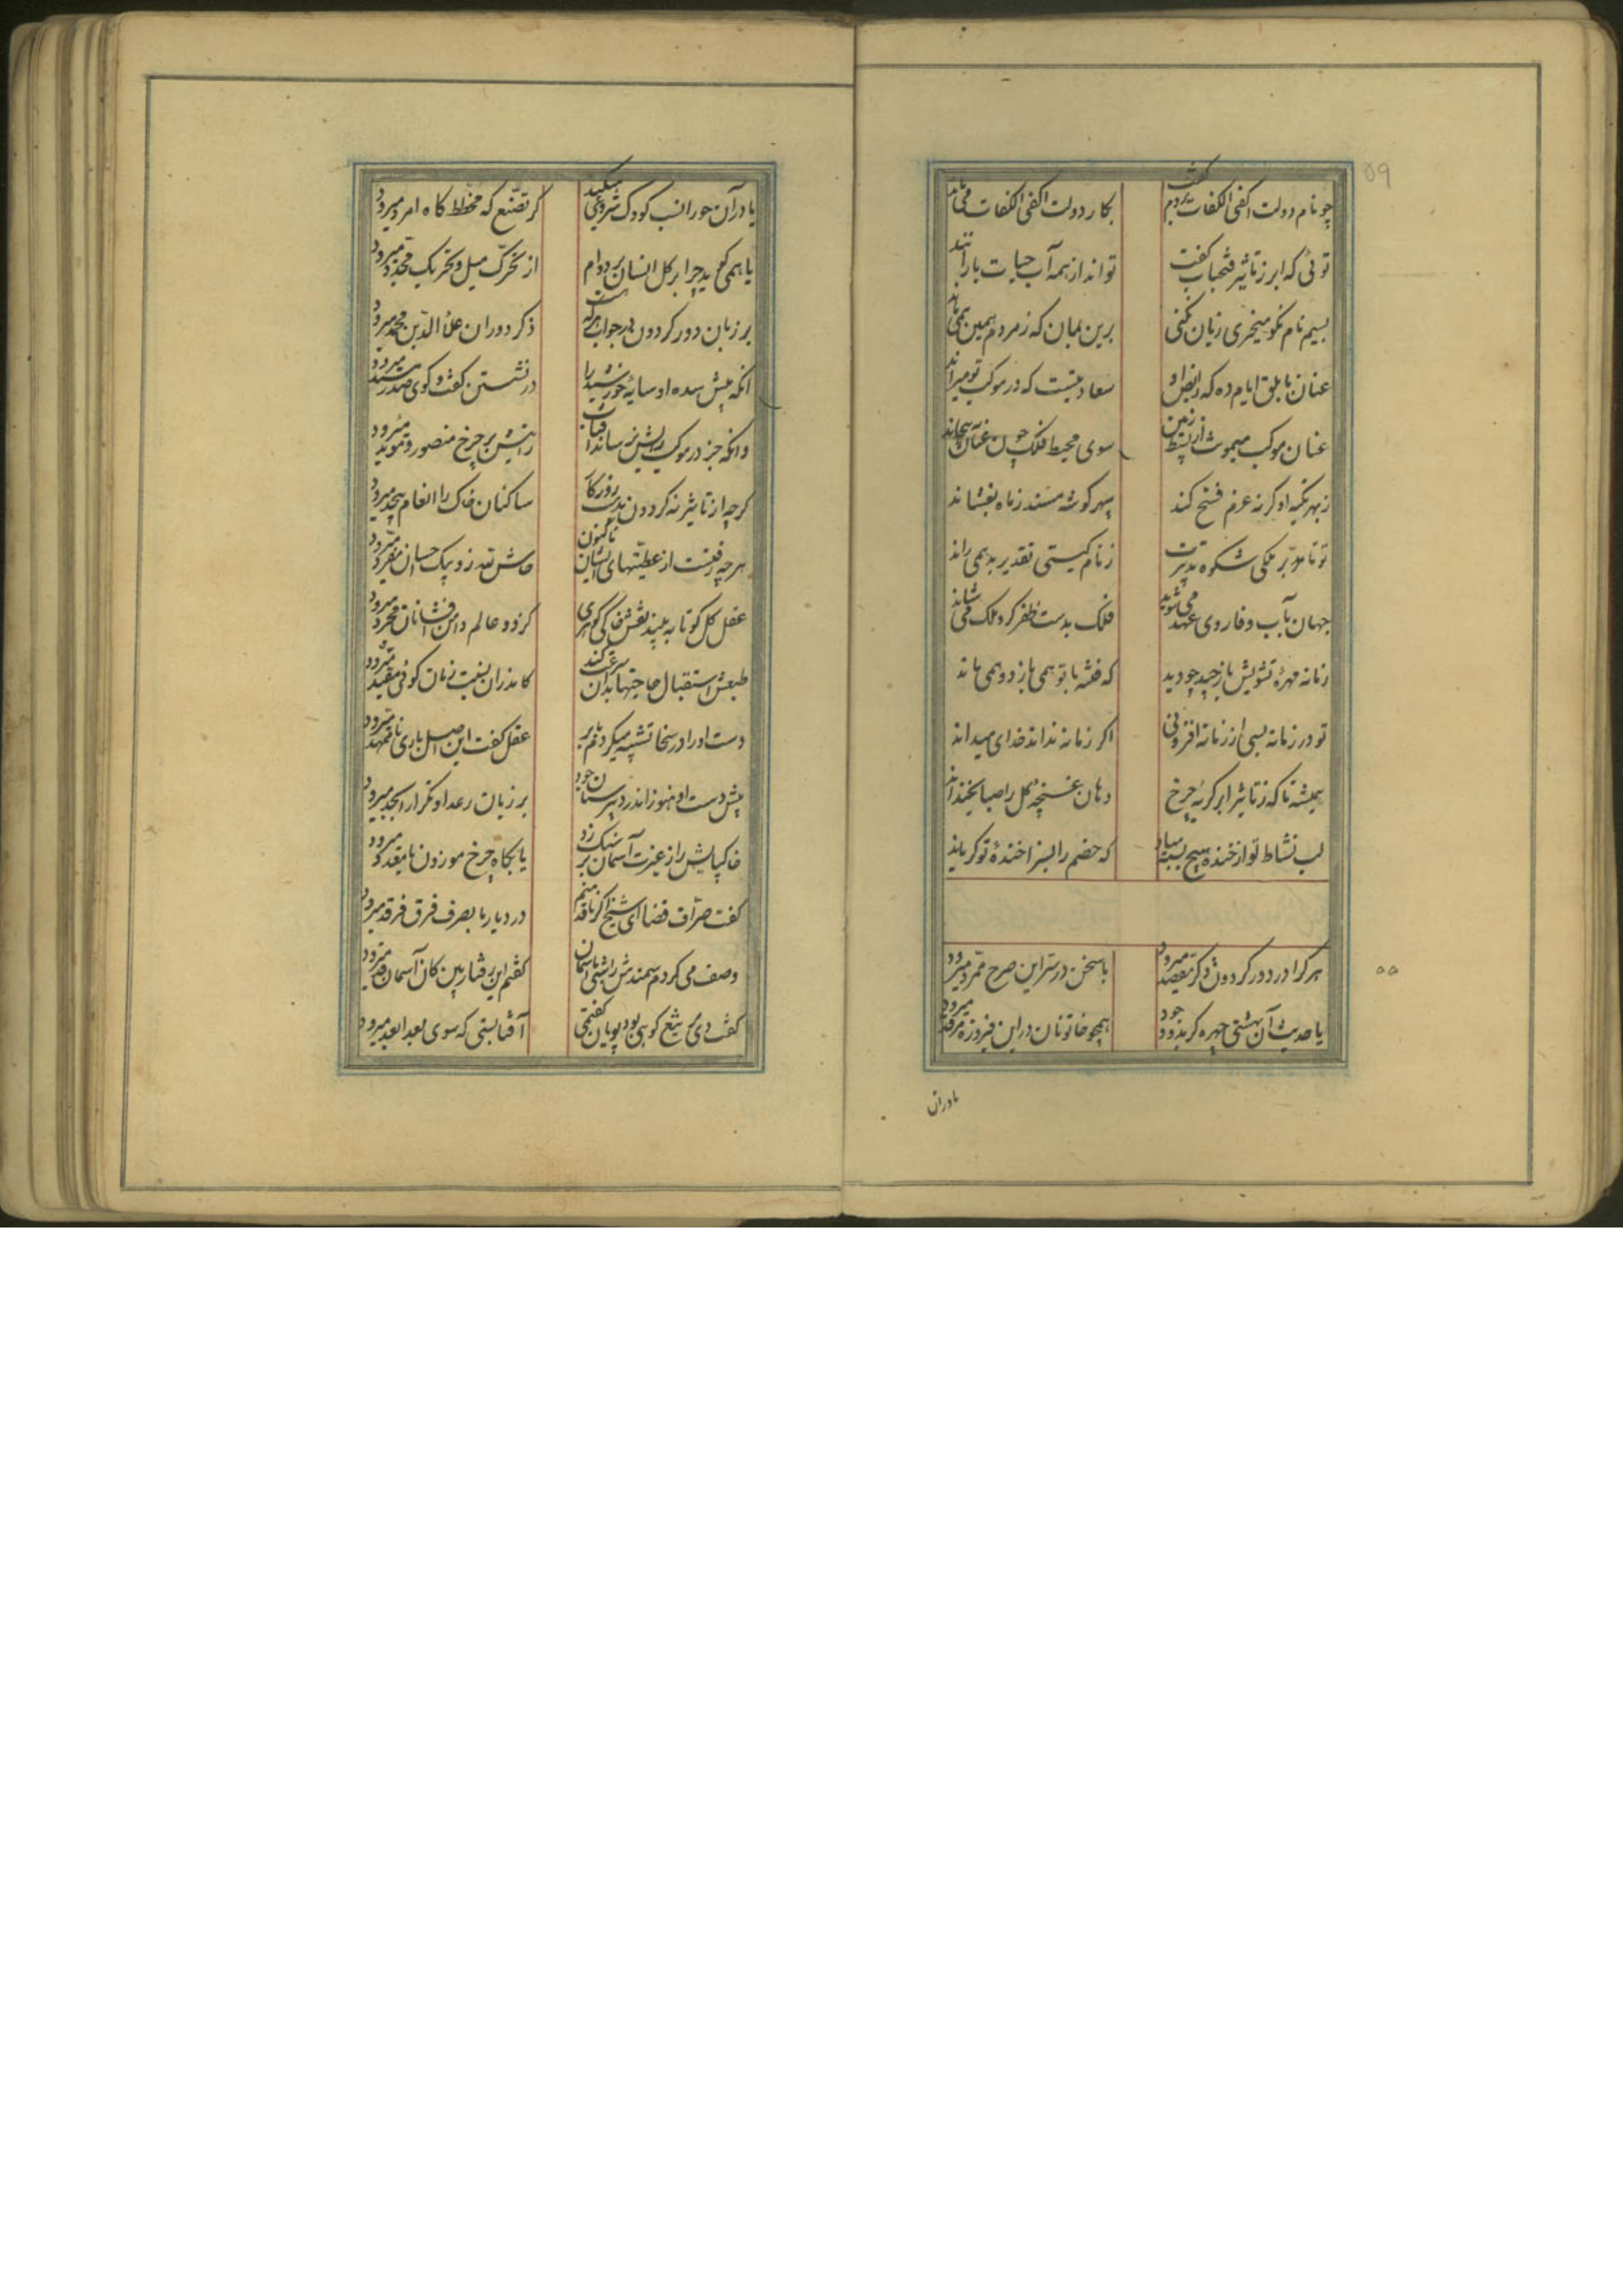 ۵۹
چو نام دولت اکفی الکفات بردم گفت
بکار دولت اکفی الکفات می‌ماند
توئی که ابر ز تاثیر فتحباب کفت
تواند از همه آب حیات باراند
بسیم نام نکو میخری زیان نکنی
برین بمان که ز مردم همین همی ماند
عنان بابلق ایام ده که رایض او
سعادتیست که در موکب تو میراند
عنان موکب میمونت از بسیط زمین
سوی محیط فلک چون عنان بپیچاند
سپهر گوشه مسند ز ماه بفشاند
تو تا مدبر ملکی شکوه تدبیرت
ز نام گیتی تقدیر بد همی راند
جهان بآب وفا روی عهد می‌شوید
فلک بدست ظفر گرد ملک می فشاند
زمانه مهرهٔ تشویش باز چید چو دید
که فتنه با تو همی بازد و همی ماند
تو در زمانه بسی از زمانه افزونی
اگر زمانه نداند خدای میداند
همیشه تا که ز تاثیر ابر گریهٔ چرخ
دهان غنچهٔ گل را صبا بخنداند
لب نشاط تو از خنده هیچ بسته مباد
که خصم را بسزا خندهٔ تو گریاند
هر کرا در دور گردون ذکر مقصد میرود
یا سخن در سر این صرح ممرد میرود
یا حدیث آن بهشتی چهره کز بدو وجود
همچو خاتونان در این فیروزه مرقد میرود
۵۵
یا در آن
یا در آن حورا نسب کودک شروعی میکنید
کز تصنع گه مخطط گاه امرد میرود
یا همی گوید چرا بر کل انسان بر دوام
از تحرک میل و تحریک مجدد میرود
بر زبان دور گردون در جواب هر که هست
ذکر دوران علاء الدین محمد میرود
آنکه پیش سده او سایهٔ خورشید را
در نشستن گفت و گوی صدر و مسند میرود
وانکه جز در موکب
رایتش بر چرخ منصور و موید میرود
گرچه از تاثیر نه گردون بدست روزگار
ساکنان خاک را انعام بیحد میرود
هرچه رفتست از عطیتهای ایشان تاکنون
حاش لله زو بیک احسان مفرد میرود
عقل کل کو تا ببیند نقش خاکی گوهری
کز دو عالم دامن افشانان مجرد میرود
طبعش استقبال حاجتها بدان سرعت کند
کاندران نسبت زمان گوئی مقید میرود
دست او را در سخا تشبیه میکردم بابر
عقل گفت این اصل باری ناممهد میرود
پیش دست او هنوز اندر دبیرستان جود
بر زبان رعد او تکرار ابجد میرود
خاکپایش را ز عزت آسمان بر سنگ زد
تا بگاه چرخ موزون یا معقد میرود
گفت صراف قضا ای شیخ اگر ناقد منم
در دیار ما بصرف فرق فرقد میرود
وصف می کردم سمندش را شبی با آسمان
گفتم این رفتار بین کان آسمان قد میرود
گفت دی بر تیغ کوهی بود پویان گفتمی
آفتابستی که سوی بعد ابعد میرود